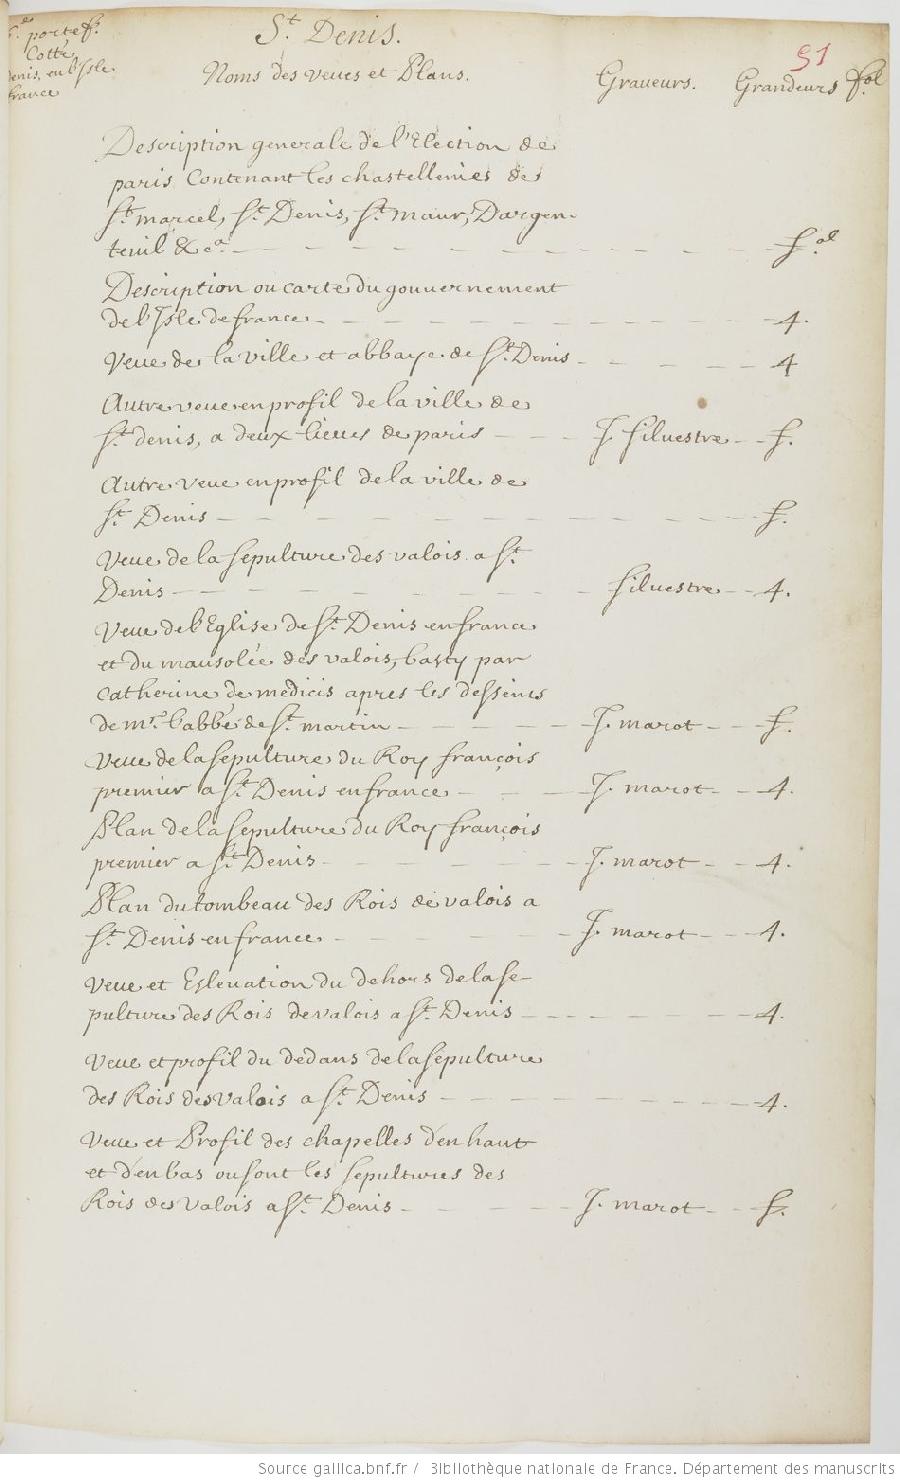 portef.
Cotté
denis, en l'Isle
france
St. Denis.
51
Noms des veues et Plans. Graveurs. Grandeurs fol
Description generale de l'Election de
paris Contenant les chastellenies de
St. marcel, St. Denis, St. maur, Dargen-
teuil & ca. fol
Description ou carte du gouvernement
de l'Isle de france 4.
Veue de la ville et abbaye de St. Denis 4
Autre veue en profil de la ville de
St. denis, a deux lieues de paris J. Silvestre f.
Autre veue en profil de la ville de
St. Denis f.
Veue de la sepulture des valois a St.
Denis Silvestre 4.
Veue de l'Eglise de St. Denis en france
et du mausolée des valois, basty par
catherine de medicis apres les desseins
de mr. l'abbé de St. martin J. marot f.
Veue de la sepulture du Roy françois
premier a St. Denis en france J. marot 4.
Plan de la sepulture du Roy françois
premier a St. Denis J. marot 4.
Plan du tombeau des Rois de valois a
St. Denis en france J. marot 4.
Veue et Eslevation du dehors de la se-
pulture des Rois de valois a St. Denis 4.
Veue et profil du dedans de la sepulture
des Rois des Valois a St. Denis 4.
Veue et Profil des chapelles d'en haut
et d'en bas ou sont les sepultures des
Rois des Valois a St. Denis J. marot f.
Source gallica.bnf.fr / Bibliothèque nationale de France. Département des manuscrits